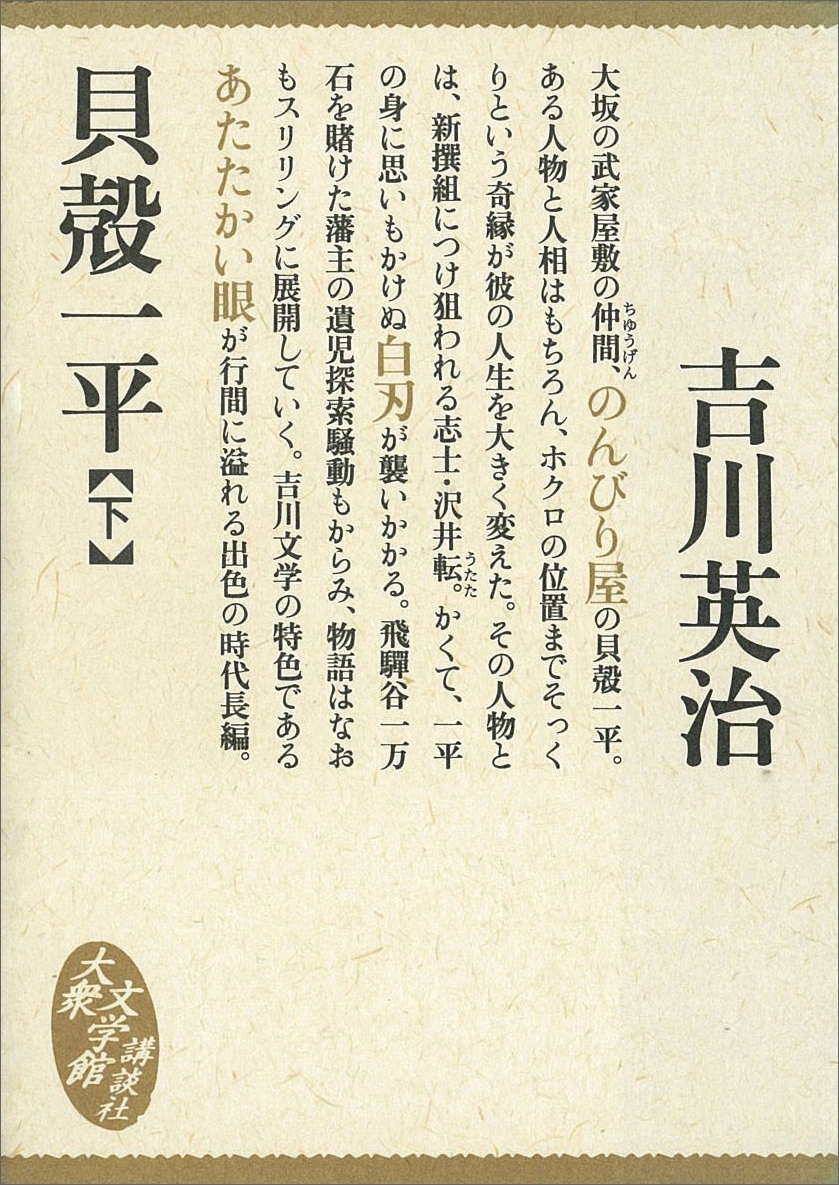 吉川英治
大坂の武家屋敷の仲間、のんびり屋の貝殻一平。
ちゅうげん
ある人物と人相はもちろん、ホクロの位置までそっく
りという奇縁が彼の人生を大きく変えた。その人物と
は、新撰組につけ狙われる志士・沢井転。かくて、一平
うたた
の身に思いもかけぬ白刃が襲いかかる。飛驒谷一万
石を賭けた藩主の遺児探索騒動もからみ、物語はなお
もスリリングに展開していく。吉川文学の特色である
あたたかい眼が行間に溢れる出色の時代長編。
貝殻一平【下】
大衆
文学館
講談社